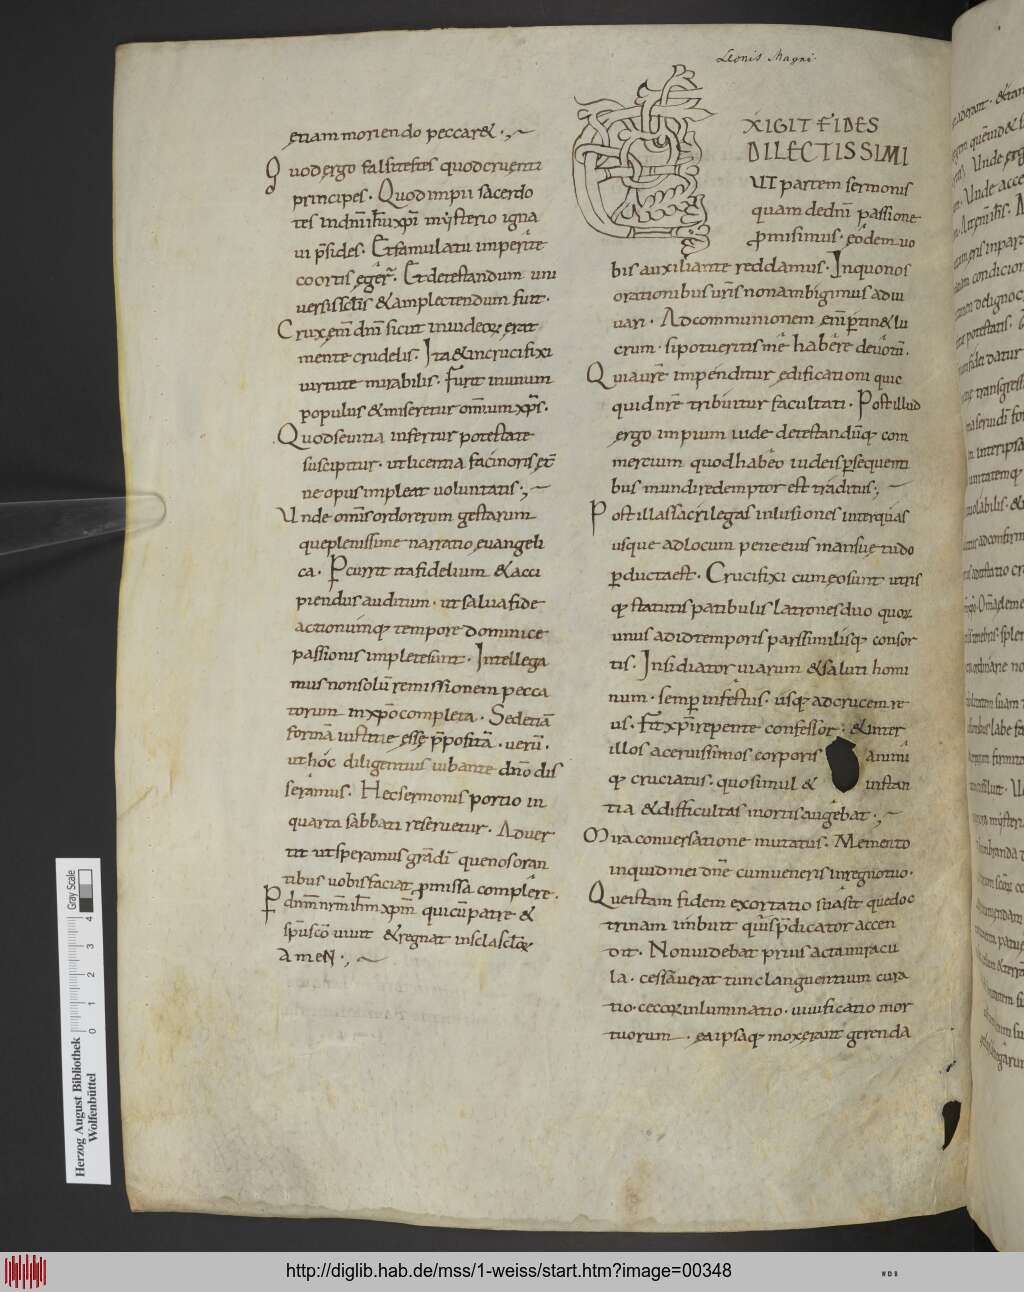 Leonis Magni.
etiam moriendo peccaret.
Quod ergo falsi testes quod cruenti
principes. Quod impii sacerdo
tes indnm ihu xpi mysterio igna
ui psides. Et famulatu imperite
coortis eger. Et detestandum uni
uersis sclis & amplectendum fuit.
Crux em dni sicut in iudeor erat
mente crudelis. Ita & in crucifixi
uirtute mirabilis. Furit in unum
populus & miseretur omnium xps.
Quod seuitia infertur potestate
suscipitur. ut licentia facinoris et
ne opus impleat uoluntatis.
Unde omis ordo rerum gestarum
que plenissime narratio euangeli
ca. Pcurrit ita fidelium & acci
piendus auditum. ut salua fide
actionumq tempore dominice
passionis impletesunt. Intellega
mus non solu remissionem pecca
torum in xpo completa. Sed etia
forma iustitie esse pposita. ueru.
ut hoc diligentius iubante dno dis
seramus. Hec sermonis portio in
quarta sabbati reseruetur. Aduer
tit ut speramus gra di que nos oran
tibus uobis faciat pmissa complere.
P dnm nrm ihm xpm qui cu patre &
spu sco uiuit & regnat in scla sclor
AMEN.
EXIGIT FIDES
DILECTISSIMI
UT partem sermonis
quam de dni passione
pmisimus. eodem uo
bis auxiliante reddamus. In quo nos
orationibus uris non ambigimus adiu
uari. Ad communionem em ptin& lu
crum. si potueritis me habere deuotu.
Quia ure impenditur edificationi quic
quid nre tribuitur facultati. Post illud
ergo impium iude detestanduq com
mercium quod habeo iudeis psequenti
bus mundi redemptor est traditus.
Post illas sacrilegas inlusiones inter quas
usque ad locum pene eius mansuetudo
pducta est. Crucifixi cum eo sunt utris
q statutis patibulis latrones duo quor
unus ad id temporis pars similisq consor
tis. Insidiator uiarum & saluti homi
num. semp infestus. usq ad crucem re
us. Fit xpi repente confessor. & inter
illos aceruissimos corporis animi
q cruciatus. quo simul & instan
tia & difficultas mortis augebat.
Mira conuersatione mutatus. Memento
inquid mei dne cum ueneris in regno tuo.
Que istam fidem exortatio suasit que doc
trinam imbuit quis pdicator accen
dit. Non uidebat prius acta miracu
la. cessauerat tunc languentium cura
tio. cecor inluminatio. uiuificatio mor
tuorum. ea ipsaq mox erant gerenda
Herzog August Bibliothek
Wolfenbüttel
Gray Scale
0 1 2 3 4
http://diglib.hab.de/mss/1-weiss/start.htm?image=00348